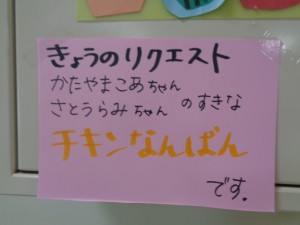 きょうのリクエスト
かたやまこあちゃん
さとうらみちゃん
のすきな
チキンなんばん
です.